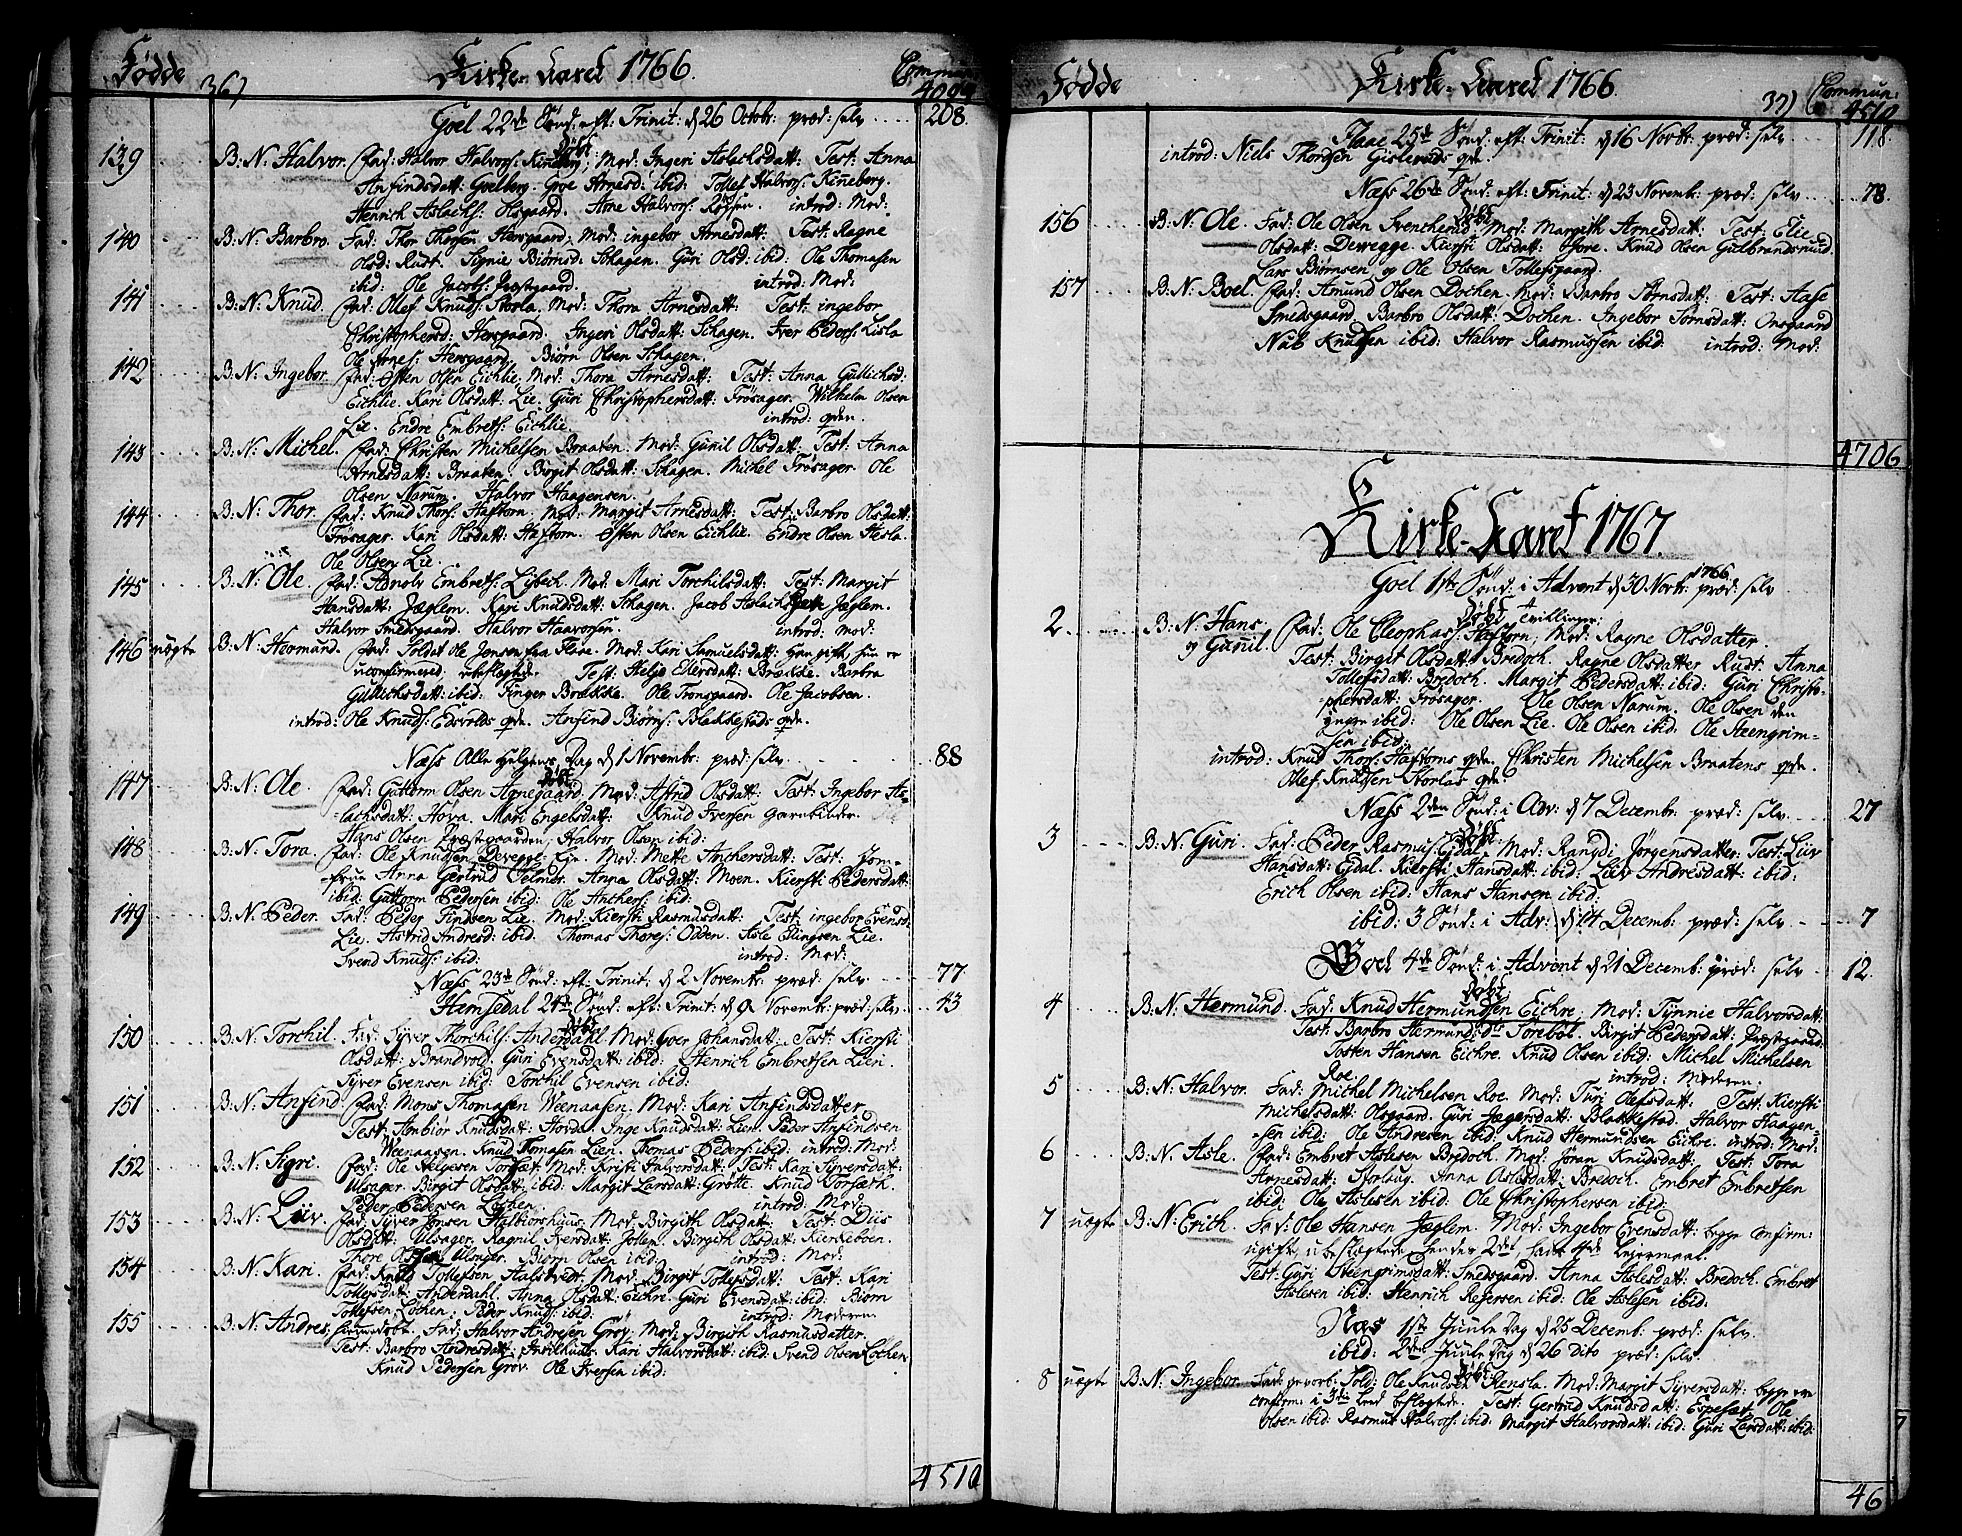 Fødde 36) Kirke-Aaret 1766. Commun:
4094
Goel 22de Sønd: eft: Trinit: d 26 Octobr: præd: selv .... 208.
døbt
139 B: N. Halvor. Fad: Halvor Halvors: Kinneberg, Mod: Ingeri Aslachsdatt: Test: Anna
Anfindsdatt: Goelberg. Groe Arnesd: ibid: Tollef Halvors: Kinneberg.
Henrich Aslachs: Olsgaard. Arne Halvors: introd: Mod:
140 B: N: Barbro. Fad: Thor Thorsen Hersgaard, Mod: ingebor Arnesdatt: Test: Ragne
Olsd: Rudt. Signie Biørnsd: Schagen. Guri Olsd: ibid: Ole Thomasen
ibid: Ole Jacobs: Præstgaard. introd: Mod:
141 B: N: Knud. Fad: Olef Knuds: Storla. Mod: Thora Arnesdatt: Test: ingebor
Christophersd: Hersgaard. Ingeri Olsdatt: Schagen. Iver Peders: Lisla
Ole Arnes: Hersgaard. Biørn Olsen Schagen.
142 B: N: Ingebor. Fad: Østen Olsen Eichlie, Mod: Thora Arnesdatt: Test: Anna Gullichsd:
Eichlie. Kari Olsdatt: Lie. Guri Christophersdatt: Frøsager. Wilhelm Olsen
Lie. Endre Embrets: Eichlie. introd: qden.
143 B: N: Michel. Fad: Christen Michelsen Braaten. Mod: Gunil Olsdatt: Test: Anna
Arnesdatt: Braaten. Birgit Olsdatt: Schagen. Michel Frøsager. Ole
Olsen Narum. Halvor Haagensen.
144 B: N: Thor. Fad: Knud Thors: Haftorn. Mod: Margit Arnesdatt: Test: Barbro Olsdatt:
Frøsager. Kari Olsdatt: Haftorn. Østen Olsen Eichlie. Endre Olsen Hesla.
Ole Olsen Lie.
145 B: N: Ole. Fad: Arnolv Embrets: Lybech. Mod. Mari Torchilsdatt: Test: Margit
Hansdatt: Jæglem. Kari Knudsdatt: Schagen. Jacob Aslachsen Jæglem.
Halvor Smedsgaard. Halvor Haavorsen. introd: Mod:
146 uægte B: N: Hermand. Fad: Soldat Ole Jensen fra Flaae. Mod: Kari Samuelsdatt: Han gift, hun er
uconfirmered, ubeslægtede. Test: Helje Ellersdatt: Brække. Barbra
Gullichsdatt: ibid: Finger Brække. Ole Tronsgaard. Ole Jacobsen.
introd: Ole Knuds: Edsvolds qde. Anfind Biørns: Blakkestads qde.
Næss Alle Helgens Dag d 1 Novembr: præd: selv. 88
døbt
147 B: N: Ole. Fad: Guttorm Olsen Agnegaard. Mod: Astrid Olsdatt: Test: Ingebor As-
lachsdatt: Høva. Mari Engebsdatt: Knud Iversen Garnbinder.
Hans Olsen Præstgaarden, Halvor Olsen ibid:
148 B: N: Tora. Fad: Ole Knudsen Devegge Eje. Mod: Mette Anchersdatt: Test: Jom-
frue Anna Gertrud Telmer. Anna Olsdatt: Moen. Kiersti Pedersdatt:
ibid: Guttorm Pedersen ibid: Ole Anthers: ibid:
149 B: N: Peder. Fad: Peder Findsen Lie. Mod: Kiersti Rasmusdatt: Test: ingebor Evensd:
Lie. Astrid Andresd: ibid: Thomas Thores: Odden. Asle Ellingsen Lie.
Svend Knuds: ibid: introd: Mod:
Næss 23de Sønd: eft: Trinit: d 2 Novembr: præd: selv 77
Hemsedal 24de Sønd: eft: Trinit: d 9 Novembr: præd: selv. 43
døbt
150 B: N: Torchil. Fad: Syver Thorchils: Anderdahl, Mod: Goer Johansdatt: Test: Kiersti
Olsdatt: Brandvold. Guri Evensdatt: ibid: Henrich Embretsen Lien.
Syver Evensen ibid: Torchil Evensen ibid:
151 B: N: Anfind. Fad: Mons Thomasen Weenaasen. Mod: Kari Anfindsdatter.
Test: Ambior Knudsdatt: Hordal. Inge Knudsdatt: Lien. Peder Anfindsen
Weenaasen. Knud Thomasen Lien. Thomas Peders: ibid: introd: Mod:
152 B: N: Sigri. Fad: Ole Helgesen Torsæt. Mod: Kristi Halvorsdatt: Test: Kari Syversdatt:
Ulsager. Birgit Olsdatt: ibid: Margit Larsdatt: Grøtte. Knud Torsæth.
Peder Pedersen introd: Mod:
153 B: N: Liiv. Fad: Syver Jonsen Halbiorshuus. Mod: Birgith Olsdatt: Test: Diis
Olsdatt: Ulsager. Ragnil Iversdatt: Birgith Olsdatt: Kierkeboen.
Thore Ulsager. Biørn Olsen ibid: introd: Mod:
154 B: N: Kari. Fad: Knud Tollefsen Halstvedt. Mod: Birgit Tollefsdatt: Test: Kari
Tollefsdatt: Anderdahl. Anna Olsdatt: Eichre. Guri Evensdatt: ibid: Biørn
Tollefsen Løchen. Peder Knuds: ibid: introd: Moderen
155 B: N: Andres, hiemmedøbt. Fad: Halvor Andresen Grøv. Mod: Birgith Rasmusdatter.
Test: Barbro Andresdatt: Kari Halvorsdatt: ibid: Svend Olsen Løchen
Knud Pedersen Grov. Ole Iversen ibid:
4510
Fødde Kirke-Aaret 1766. 37) Commun:
4510
Flaae 25de Sønd: eft: Trinit: d 16 Novbr: præd: selv 118
introd: Niels Thordsen Gisleruds qde.
Næss 26de Sønd: eft: Trinit: d 23 Novembr: præd: selv 78.
døbt
156 B: N: Ole. Fad: Ole Olsen Svencherud, Mod: Margith Arnesdatt: Test: Elie
Olsdatt: Dewegge. Kiersti Olsdatt: Thore. Knud Olsen Gulbrandsrud.
Lars Biørnsen og Ole Olsen Tollefsgaard.
157 B: N: Boel. Fad: Amund Olsen Dochen. Mod: Barbro Sørnsdatt: Test: Aase
Smedsgaard. Barbro Olsdatt: Dochen. Ingebor Sørnsdatt: Onsgaard
Niels Knudsen ibid: Halvor Rasmussen ibid: introd: Mod:
4706
Kirke-Aaret 1767.
Goel 1ste Sønd: i Advent d 30 Novbr: 1766 præd: selv
døbt Tvillinger:
2 B: N: Hans og Gunil. Fad: Ole Cleophas: Haftorn, Mod: Ragne Olsdatter.
Test: Birgit Olsdatt: Bredoch. Ragne Olsdatter Rudt. Anna
Tollefsdatt: Bredoch. Margit Pedersdatt: ibid: Guri Christo-
phersdatt: Frøsager. Ole Olsen Narum. Ole Olsen den
yngre ibid: Ole Olsen Lie. Ole Olsen ibid. Ole Steengrim-
sen ibid:
introd: Knud Thors: Haftorns qde. Christen Michelsen Braatens qde.
Olef Knudsen Storlas qde:
Næss 2den Sønd: i Adv: d 7 Decembr: præd: selv. 27
døbt
3 B: N: Guri. Fad: Peder Rasmus: Ejdal, Mod: Rangdi Jørgensdatter. Test: Liiv
Hansdatt: Ejdal. Kiersti Hansdatt: ibid: Liiv Andresdatt: ibid:
Erich Olsen ibid: Hans Hansen ibid:
ibid: 3 Sønd: i Adv: d 14 Decemb: præd: selv 7
Goel 4de Sønd: i Advent d 21 Decemb: præd: selv 12.
døbt
4 B: N: Hermünd. Fad: Knud Hermundsen Eichre, Mod: Tynnie Halvorsdatt:
Test: Barbro Hermund:d: Torebøl. Birgit Pedersdatt: Præstgaard.
Tosten Hansen Eichre. Knud Olsen ibid: Michel Michelsen
Roe. introd: Moderen.
5 B: N: Halvor. Fad: Michel Michelsen Roe. Mod: Turi Olefsdatt: Test: Kiersti
Michelsdatt: Olsgaard. Guri Jægersdatt: Blakkestad. Halvor Haagen-
sen ibid: Ole Andresen ibid: Knud Hermundsen Eickre. introd: Mod:
6 B: N. Asle. Fad: Embret Aslesen Bredoch. Mod: Jøran Knudsdatt: Test: Tora
Arnesdatt: Storlaug. Anna Aslesdatt: Bredoch. Embret Embretsen
ibid: Ole Aslesen ibid: Ole Christophersen ibid:
7 uægte B: N: Erich. Fad: Ole Hansen Jæglem. Mod: Ingebor Evensdatt: begge confirm:
ugifte, ubeslægtede, hendes 2det, hans 4de leiermaal.
Test: Guri Steengrimsdatt: Smedsgaard. Anna Aslesdatt: Bredoch. Embret
Aslesen ibid: Henrich Regersen ibid: Ole Aslesen ibid:
Næs 1ste Juule Dag d 25 Decemb: præd: selv.
ibid: 2den Juule Dag d 26 Dito præd: selv.
døbt
8 uægte B: N: Ingebor. Fad: gevorb: Sold: Ole Knudsen Rensla. Mod: Margit Syversdatt: begge ere
confirm: i 3die Leed beslægtede. Test: Gertrud Knudsdatt: Espesæt. Ole
Olsen ibid: Rasmus Halvors: ibid: Margit Halvorsdatt: ibid: Guri Larsdatt: ibid:
46